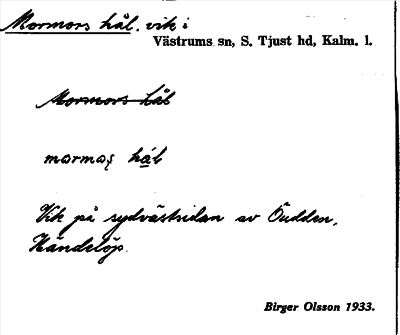 Mormors hål, vik i
Västrums sn, S. Tjust hd, Kalm. l.
Mormors hål
Vik på sydvästsidan av Öudden,
Händelöp.
Birger Olsson 1933.